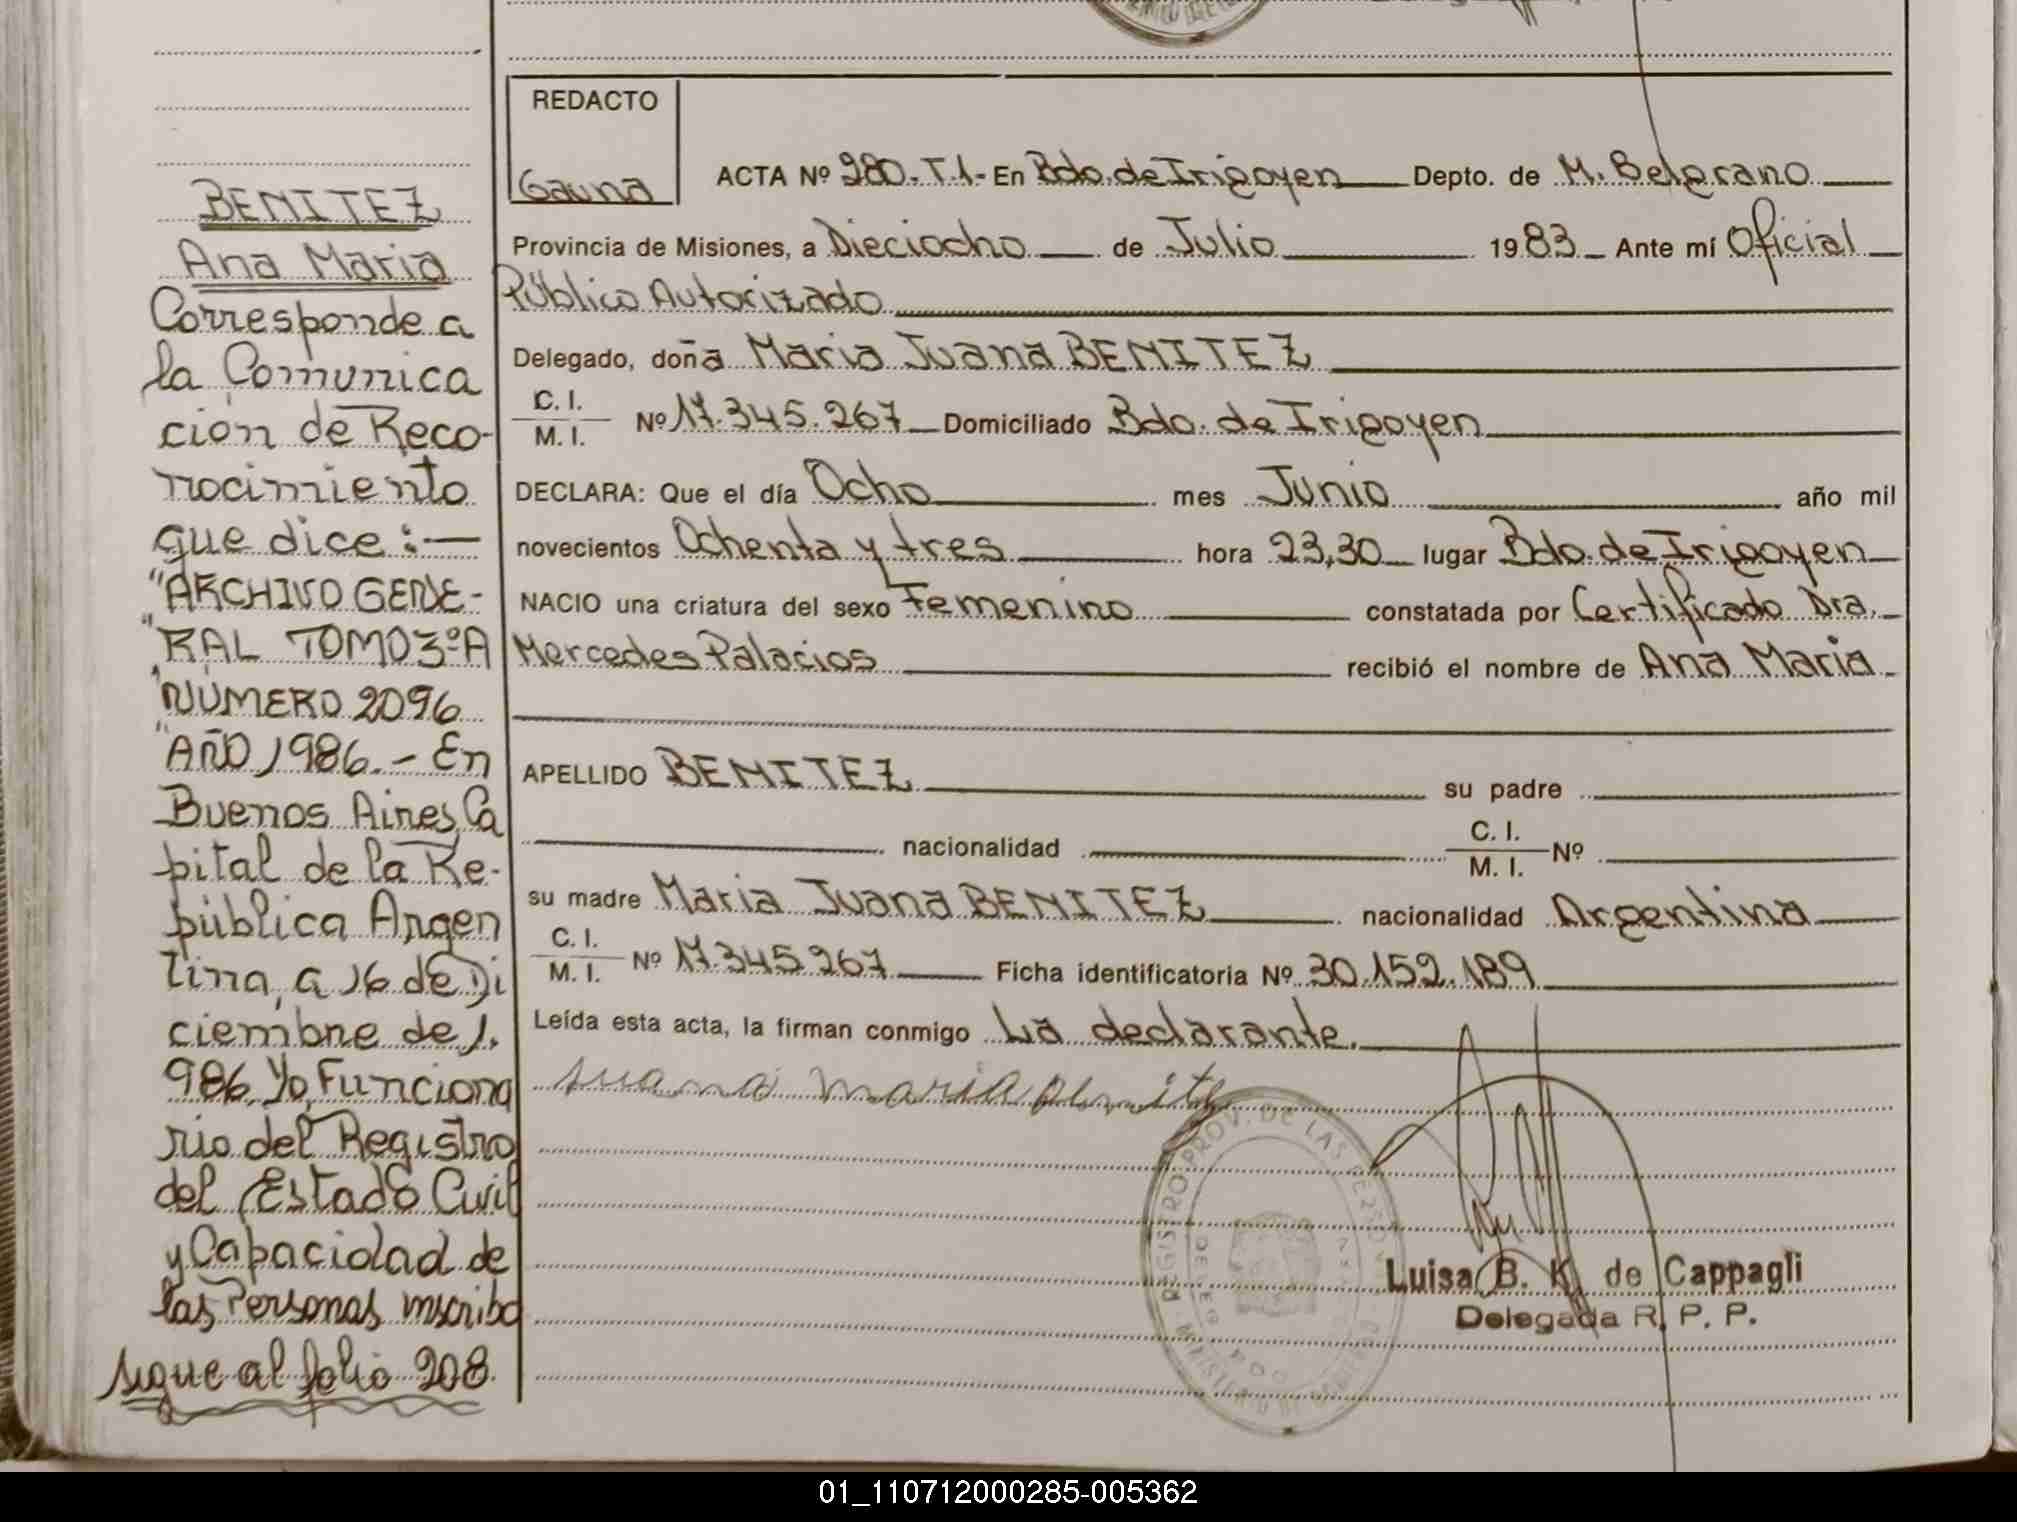 BENITEZ
Ana Maria
Corresponde a
la Comunica
ción de Reco-
nocimiento
que dice:—
"ARCHIVO GENE-
"RAL TOMO 3ºA
"NÚMERO 2096
"AÑO 1986.- En
Buenos Aires, Ca
pital de la Re-
pública Argen
tina, a 16 de Di
ciembre de 1.
986, Yo, Funciona
rio del Registro
del Estado Civil
y Capacidad de
las Personas inscribo
sigue al folio 208
REDACTO
Gauna
ACTA Nº 280. T.1.- En Bdo. de Irigoyen Depto. de M. Belgrano
Provincia de Misiones, a Dieciocho de Julio 1983 Ante mí Oficial
Público Autorizado
Delegado, doña Maria Juana BENITEZ
C. I.
M. I. Nº 17.345.267 Domiciliado Bdo. de Irigoyen
DECLARA: Que el día Ocho mes Junio año mil
novecientos Ochenta y tres hora 23,30 lugar Bdo. de Irigoyen
NACIO una criatura del sexo Femenino constatada por Certificado Dra.
Mercedes Palacios recibió el nombre de Ana Maria
APELLIDO BENITEZ su padre
nacionalidad C. I.
M. I. Nº
su madre Maria Juana BENITEZ nacionalidad Argentina
C. I.
M. I. Nº 17.345.267 Ficha identificatoria Nº 30.152.189
Leída esta acta, la firman conmigo La declarante.
Juana maria Benitez
REGISTRO PROV. DE LAS
Luisa B. K. de Cappagli
Delegada R. P. P.
01_110712000285-005362